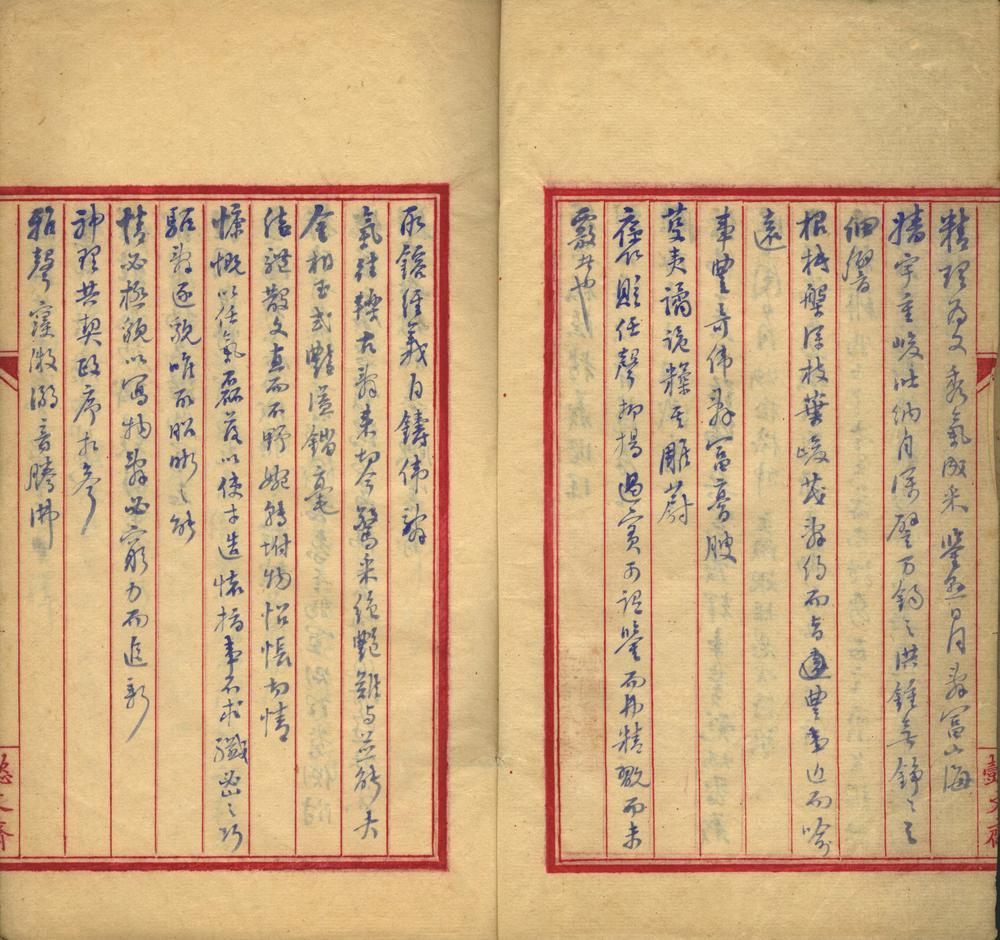 精理為文秀氣成采 鑒懸日月辭富山海
墻宇重峻吐納自深 譬萬鈞之洪鍾無錚錚之
細響
根柢槃深枝葉峻茂 辭約而旨豐事近而喻
遠
事豐奇偉辭富膏腴
芟夷譎詭糅其雕蔚
褒貶任聲抑揚過實可謂鑒而弗精翫而未
覈者也
懿文齋
取鎔經義自鑄偉辭
氣往轢古辭來切今驚采絕艷難與並能矣
金相玉式艷溢錙毫
結體散文直而不野婉轉附物怊悵切情
慷慨以任氣磊落以使才造懷指事不求纖密之巧
驅辭逐貌唯取昭晰之能
情必極貌以寫物辭必窮力而追新
神理共契政序相參
雅聲寖微溺音騰沸
懿文齋